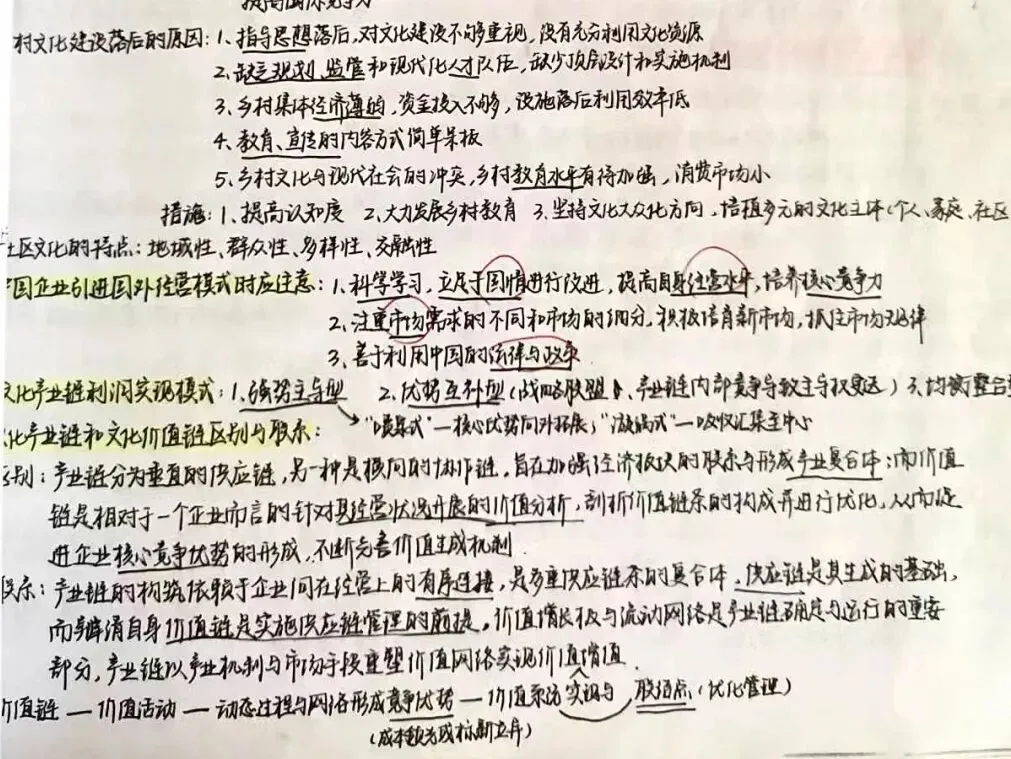 提高国际竞争力
村文化建设落后的原因：1、指导思想落后，对文化建设不够重视，没有充分利用文化资源
2、缺乏规划、监管和现代化人才队伍，缺少顶层设计和实施机制
3、乡村集体经济薄弱，资金投入不够，设施落后利用效率低
4、教育、宣传的内容方式简单呆板
5、乡村文化与现代社会的冲突，乡村教育水平有待加强，消费市场小
措施：1、提高认知度 2、大力发展乡村教育 3、坚持文化大众化方向，培植多元的文化主体（个人、家庭、社区
社区文化的特点：地域性、群众性、多样性、交融性
中国企业引进国外经营模式时应注意：1、科学学习，立足于国情进行改进，提高自身经营水平，培养核心竞争力
2、注重市场需求的不同和市场的细分，积极培育新市场，抓住市场规律
3、善于利用中国的法律与政策
文化产业链利润实现模式：1、强势主导型 2、优势互补型（战略联盟、产业链内部竞争导致主导权更迭）3、均衡整合型
“喷泉式”—核心优势向外拓展；“漩涡式”—吸收汇集至中心
文化产业链和文化价值链区别与联系：
区别：产业链分为垂直的供应链，另一种是横向的协作链，旨在加强经济板块的联系与形成产业复合体；而价值
链是相对于一个企业而言的针对其经营状况开展的价值分析，剖析价值链条的构成并进行优化，从而促
进企业核心竞争优势的形成，不断完善价值生成机制.
联系：产业链的构筑依赖于企业间在经营上的有序连接，是多重供应链条的复合体，供应链是其生成的基础，
而辨清自身价值链是实施供应链管理的前提。价值增长极与流动网络是产业链确定与运行的重要
部分，产业链以产业机制与市场手段重塑价值网络实现价值增值.
价值链 — 价值活动 — 动态过程与网络形成竞争优势 — 价值系统实现与联结点（优化管理）
（成本领先或标新立异）